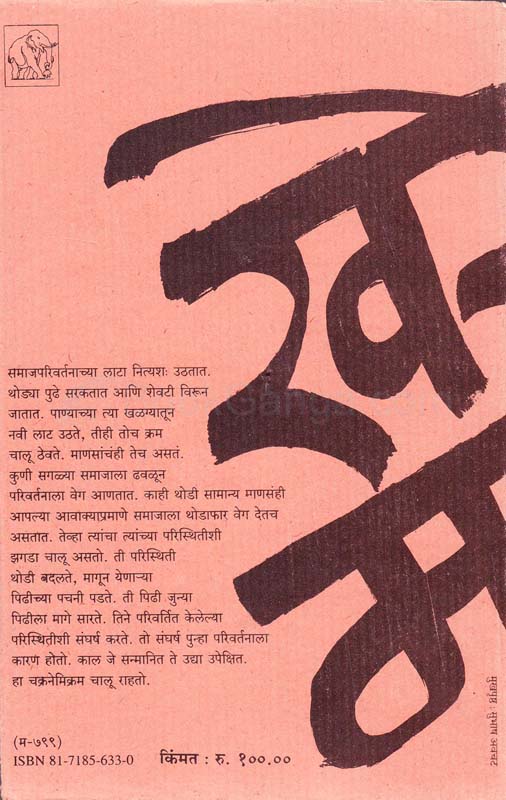 ख
म
समाजपरिवर्तनाच्या लाटा नित्यशः उठतात.
थोड्या पुढे सरकतात आणि शेवटी विरून
जातात. पाण्याच्या त्या खळग्यातून
नवी लाट उठते, तीही तोच क्रम
चालू ठेवते. माणसांचंही तेच असतं.
कुणी सगळ्या समाजाला ढवळून
परिवर्तनाला वेग आणतात. काही थोडी सामान्य माणसंही
आपल्या आवाक्याप्रमाणे समाजाला थोडाफार वेग देतच
असतात. तेव्हा त्यांचा त्यांच्या परिस्थितीशी
झगडा चालू असतो. ती परिस्थिती
थोडी बदलते, मागून येणाऱ्या
पिढीच्या पचनी पडते. ती पिढी जुन्या
पिढीला मागे सारते. तिने परिवर्तित केलेल्या
परिस्थितीशी संघर्ष करते. तो संघर्ष पुन्हा परिवर्तनाला
कारण होतो. काल जे सन्मानित ते उद्या उपेक्षित.
हा चक्रनेमिक्रम चालू राहतो.
मुखपृष्ठ : सुभाष अवचट
(म-७९९)
ISBN 81-7185-633-0 किंमत : रु. १००.००